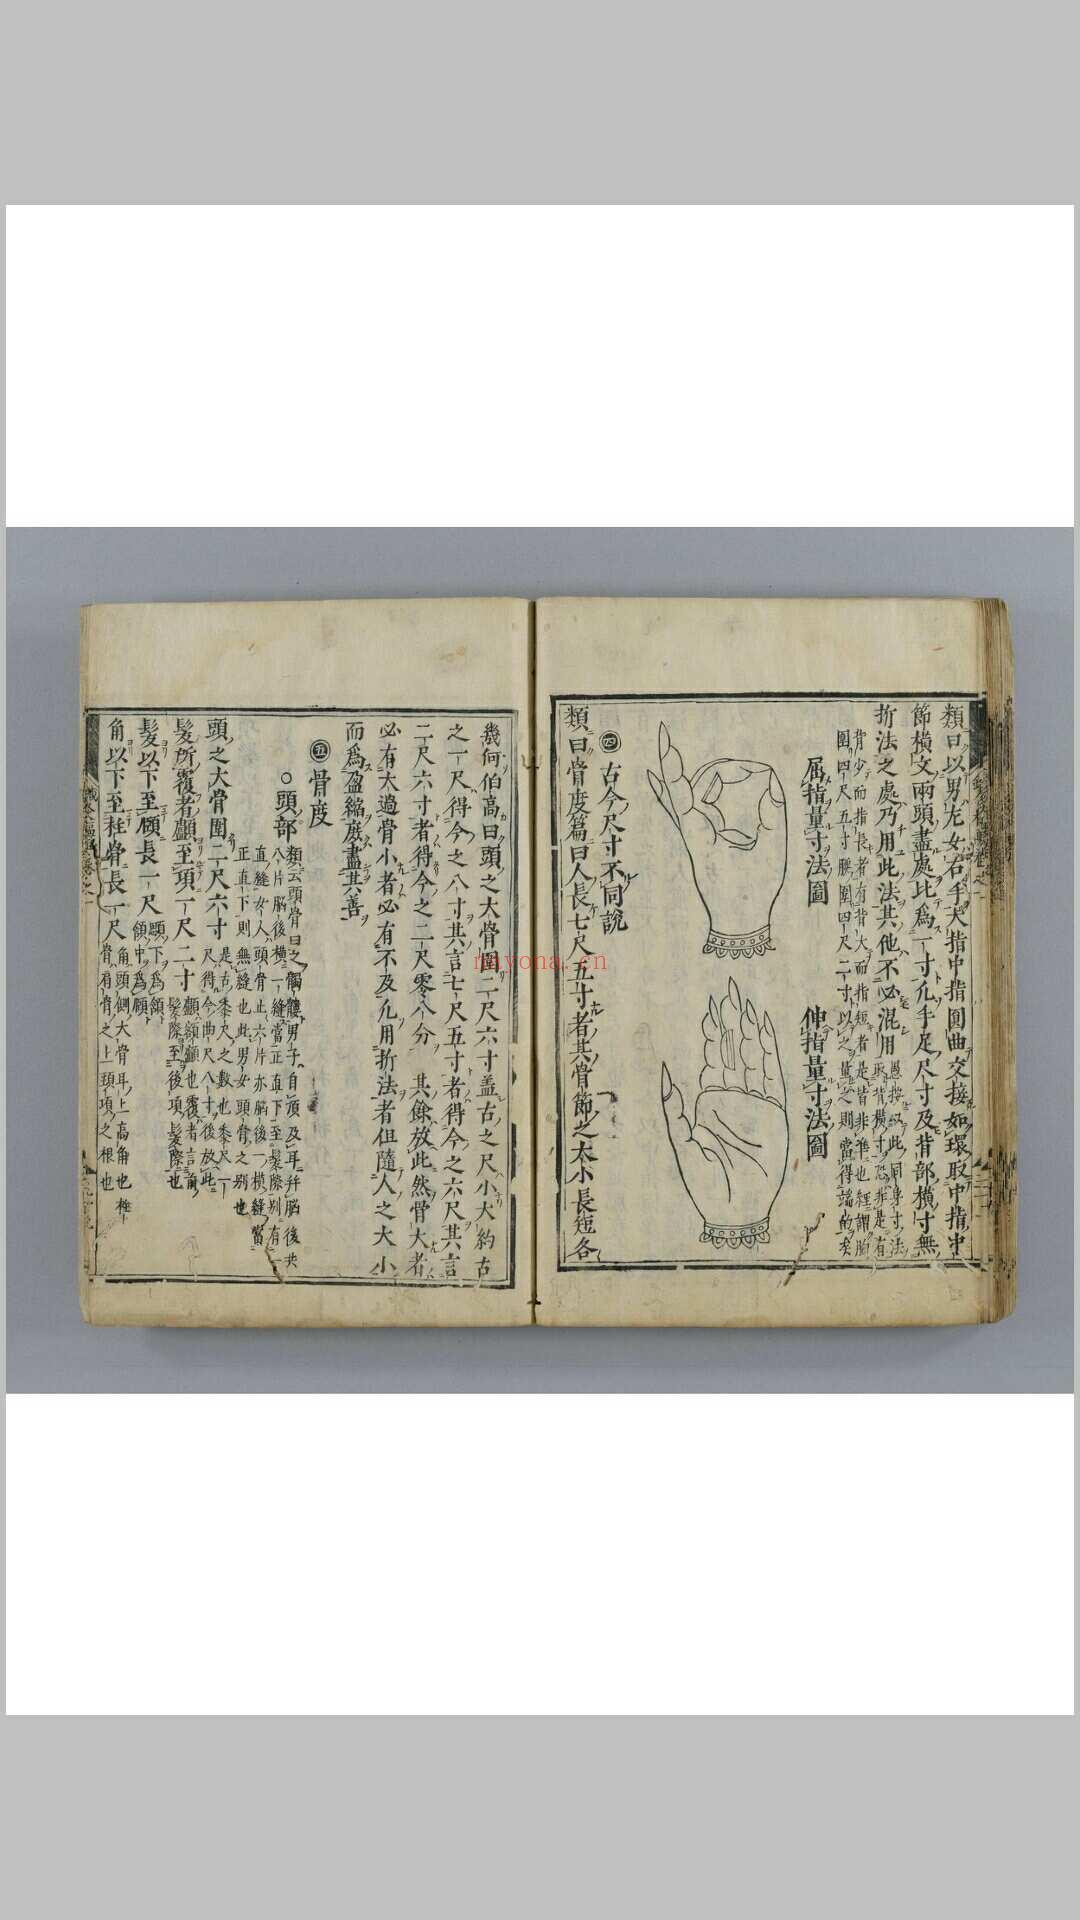 類曰以男左女右手大指中指圓曲交接如環取中指中
節横文兩頭盡處比爲一寸凢手足尺寸及背部横寸無
折法之處乃用此法其他不必混用
愚按以此同身寸法
取背横寸恐非是有
背少而指長者有背大而指短者是皆非準也經謂胸
圍四尺五寸腰圍四尺二寸以之量之則當得端的矣
屈指量寸法圖
伸指量寸法圖
㊃古今尺寸不同說
類曰骨度篇曰人長七尺五寸者其骨節之大小長短各
幾何伯高曰頭之大骨圍二尺六寸盖古之尺小大約古
之一尺得今之八寸其言七尺五寸者得今之六尺其言
二尺六寸者得今之二尺零八分 其餘放此然骨大者
必有太過骨小者必有不及凢用折法者但隨人之大小
而爲盈縮庶盡其善
㊄骨度
○頭部
類云頭骨曰之髑髏男子自頂及耳幷腦後共
八片腦後横一縫當正直下至髮際別有一
直縫女人頭骨止六片亦腦後一横縫當
正直下則無縫也此男女頭骨之別也
頭之大骨圍二尺六寸
是古黍尺之數也黍尺一
尺得今曲尺八寸後放此
髮所覆者顱至項一尺二寸
顱額顱也覆者言前
髮際至後項髮際也
髮以下至頤長一尺
顋下爲頷
頷中爲頤
角以下至柱骨長一尺
角頭側大骨耳上高角也柱
骨肩骨之上頸項之根也
nayona.cn